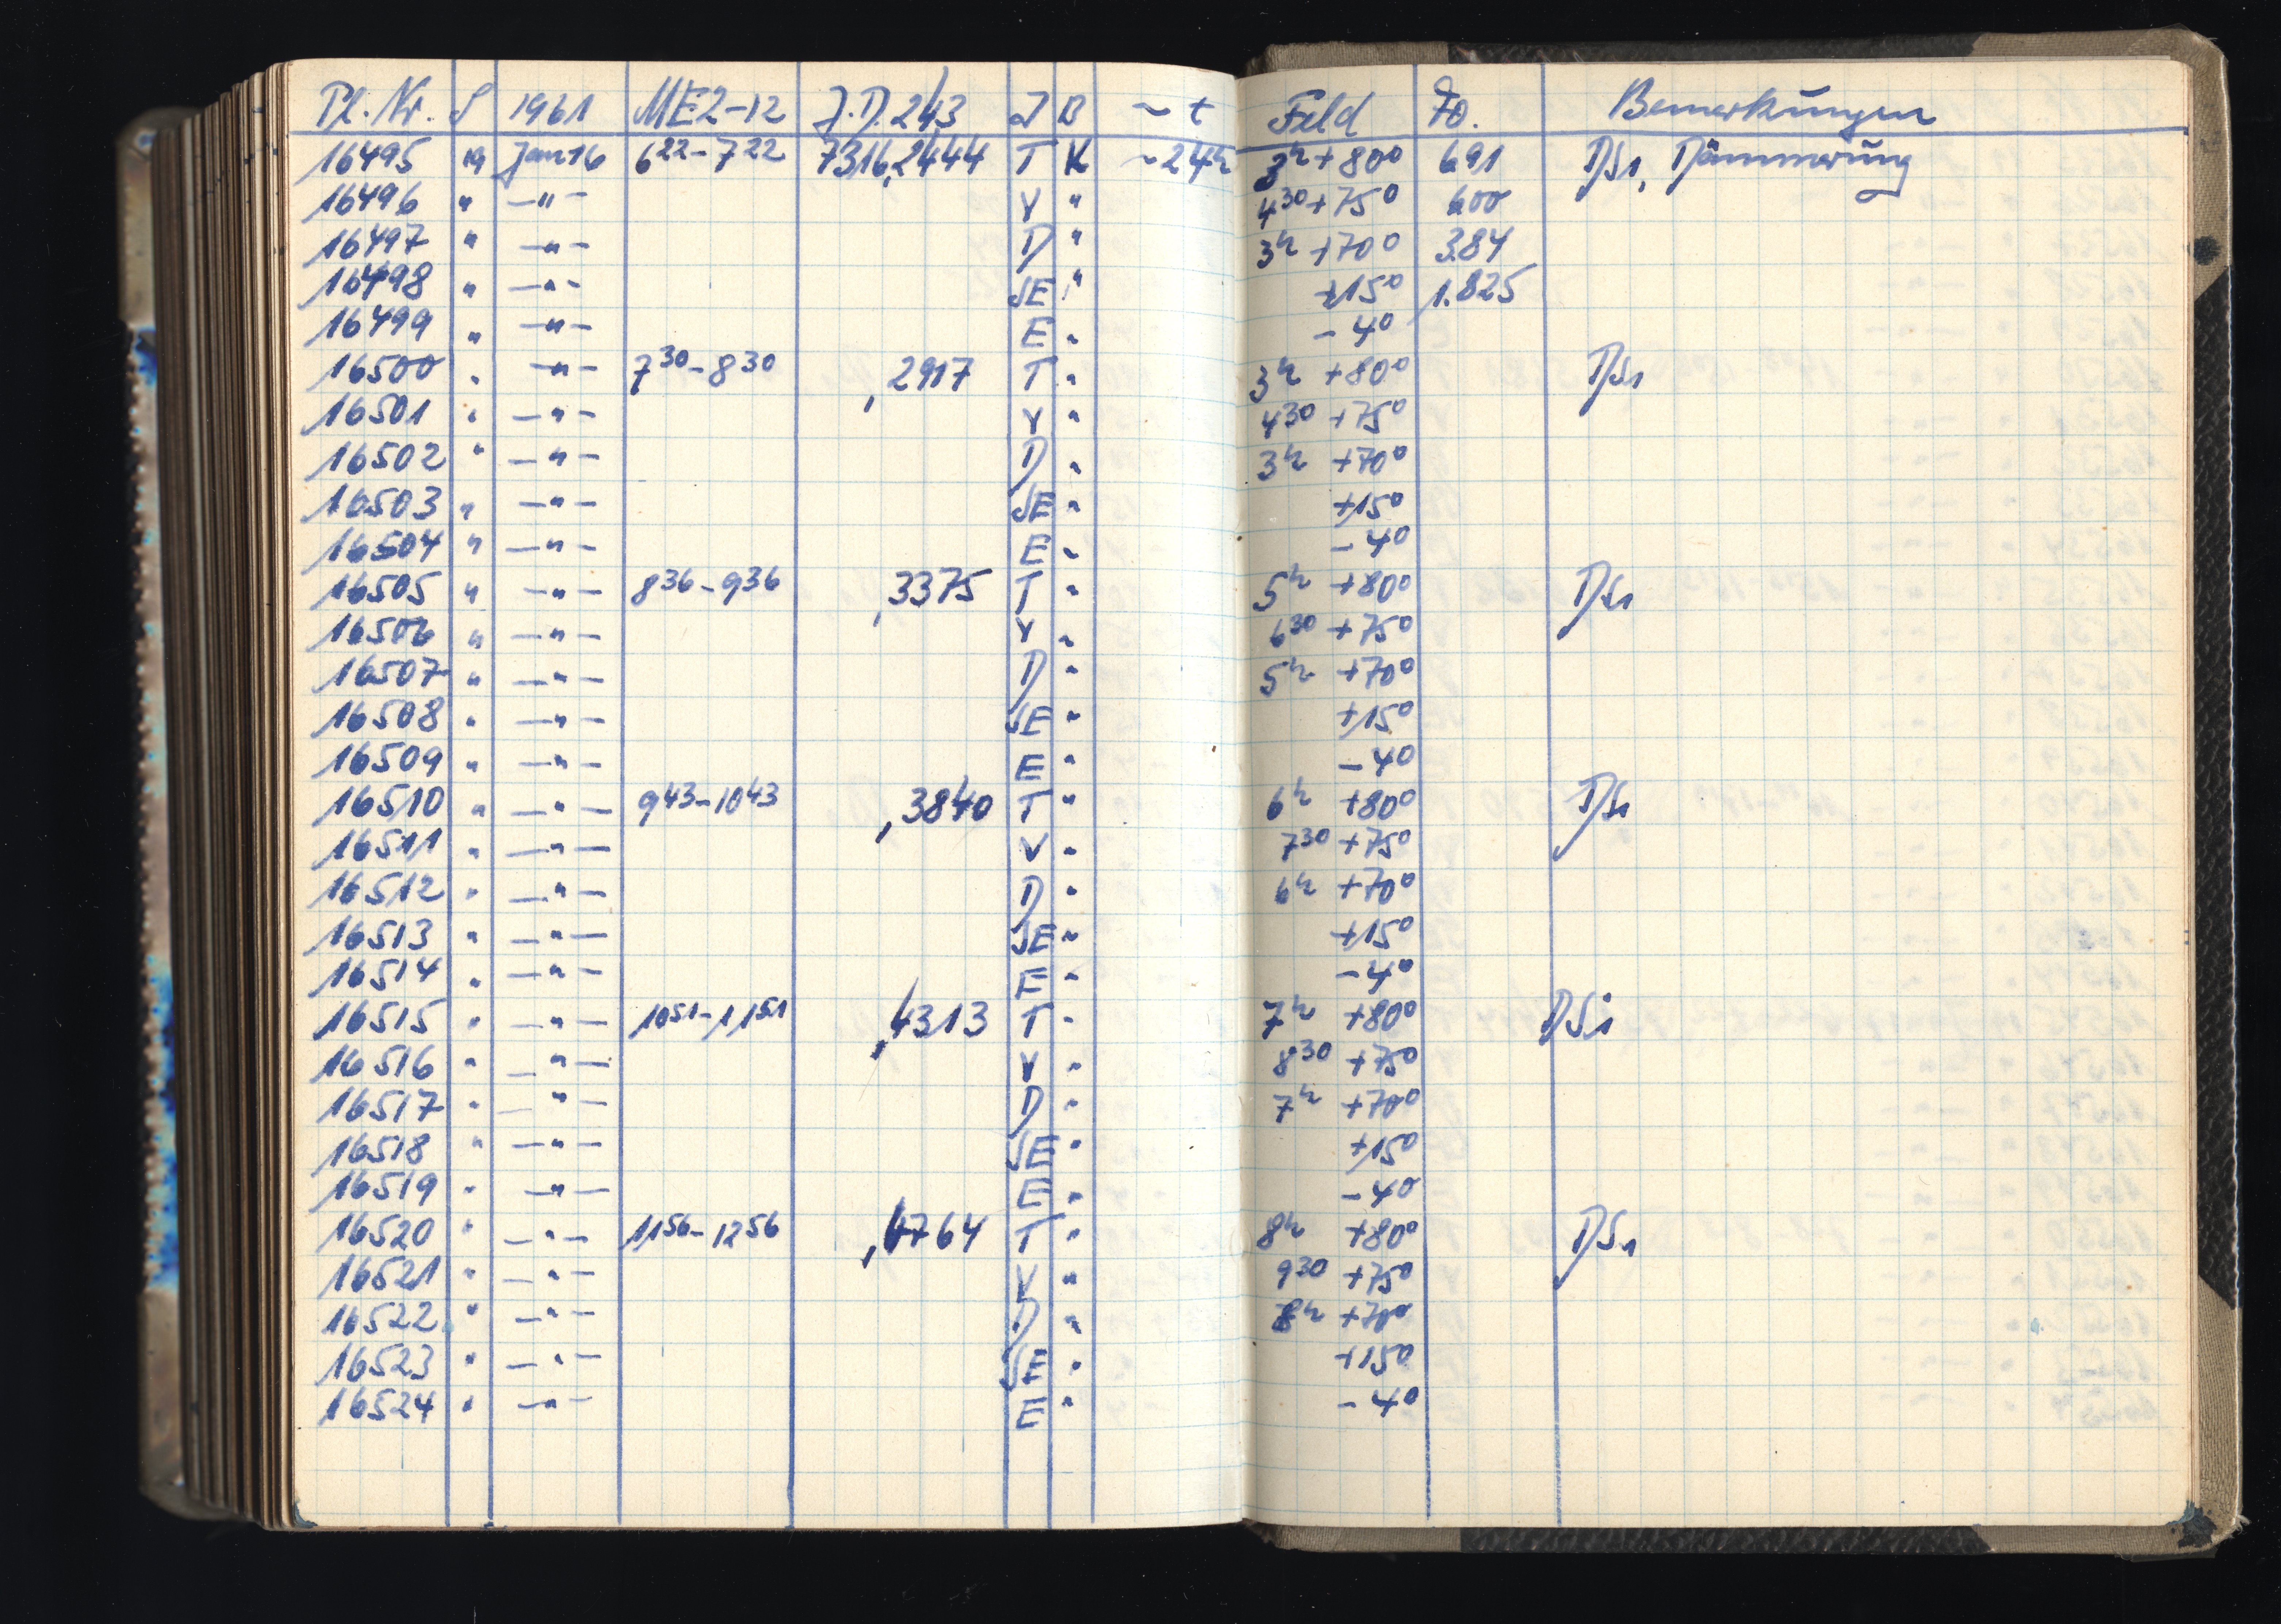 Pl. Nr. S 1961 ME2-12 J.D. 243 I B ~ t Feld Fo. Bemerkungen
16495 19 Jan 16 6 22 - 7 22 7316,2444 T K ~24h 3h +80° 691 DS1, Dämmerung
16496 " -"- V " 4 30 +75° 600
16497 " -"- D " 3h +70° 3.84
16498 " -"- SE " +15° 1.825
16499 " -"- E " -4°
16500 " -"- 7 30 - 8 30 ,2917 T " 3h +80° DS1
16501 " -"- V " 4 30 +75°
16502 " -"- D " 3h +70°
16503 " -"- SE " +15°
16504 " -"- E " -4°
16505 " -"- 8 36 - 9 36 ,3375 T " 5h +80° DS1
16506 " -"- V " 6 30 +75°
16507 " -"- D " 5h +70°
16508 " -"- SE " +15°
16509 " -"- E " -4°
16510 " -"- 9 43 - 10 43 ,3840 T " 6h +80° DS1
16511 " -"- V " 7 30 +75°
16512 " -"- D " 6h +70°
16513 " -"- SE " +15°
16514 " -"- E " -4°
16515 " -"- 10 51 - 11 51 ,4313 T " 7h +80° DS1
16516 " -"- V " 8 30 +75°
16517 " -"- D " 7h +70°
16518 " -"- SE " +15°
16519 " -"- E " -4°
16520 " -"- 11 56 - 12 56 ,4764 T " 8h +80° DS1
16521 " -"- V " 9 30 +75°
16522 " -"- D " 8h +70°
16523 " -"- SE " +15°
16524 " -"- E " -4°